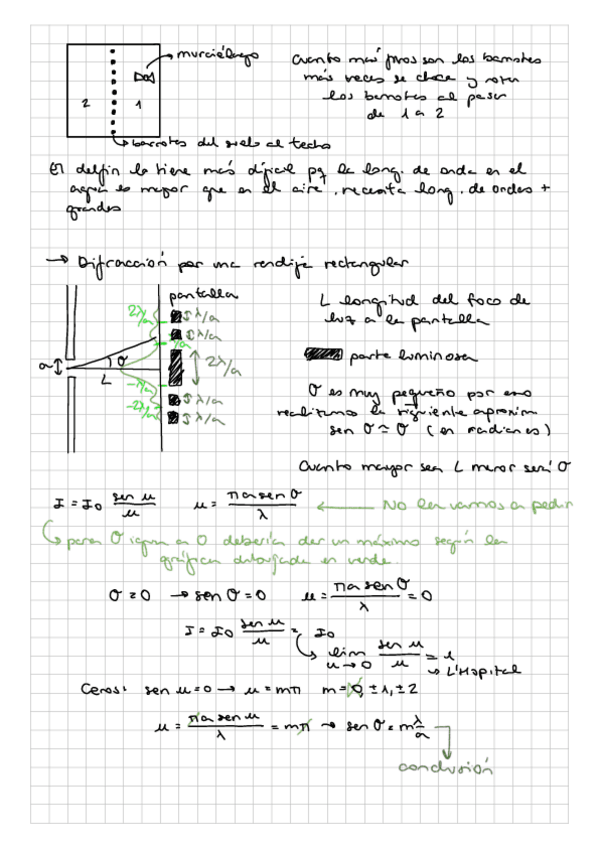 murciélago
2
1
barrotes del suelo al techo
Cuanto más finos son los barrotes
más veces se choca y rota
los barrotes al pasar
de 1 a 2
El delfín lo tiene más difícil pq la long. de onda en el
agua es mayor que en el aire, necesita long. de ondas +
grandes
→ Difracción por una rendija rectangular
pantalla
2λ/a
λ/a
a
θ
L
-λ/a
-2λ/a
↕λ/a
↕λ/a
2λ/a
↕λ/a
↕λ/a
L longitud del foco de
luz a la pantalla
parte luminosa
σ es muy pequeño por eso
realizamos la siguiente aproxim
sen σ ≃ σ (en radianes)
Cuanto mayor sea L menor será σ
I = I0 sen u / u   u = πa sen σ / λ ← No la vamos a pedir
para σ igual a 0 debería dar un máximo según la
gráfica dibujada en verde.
σ = 0 → sen σ = 0   u = πa sen σ / λ = 0
I = I0 sen u / u = I0
lim u→0 sen u / u = 1
→ L'Hopital
Ceros: sen u = 0 → u = mπ   m = 0, ±1, ±2
u = πa sen u / λ = mπ → sen σ = m λ/a
conclusión